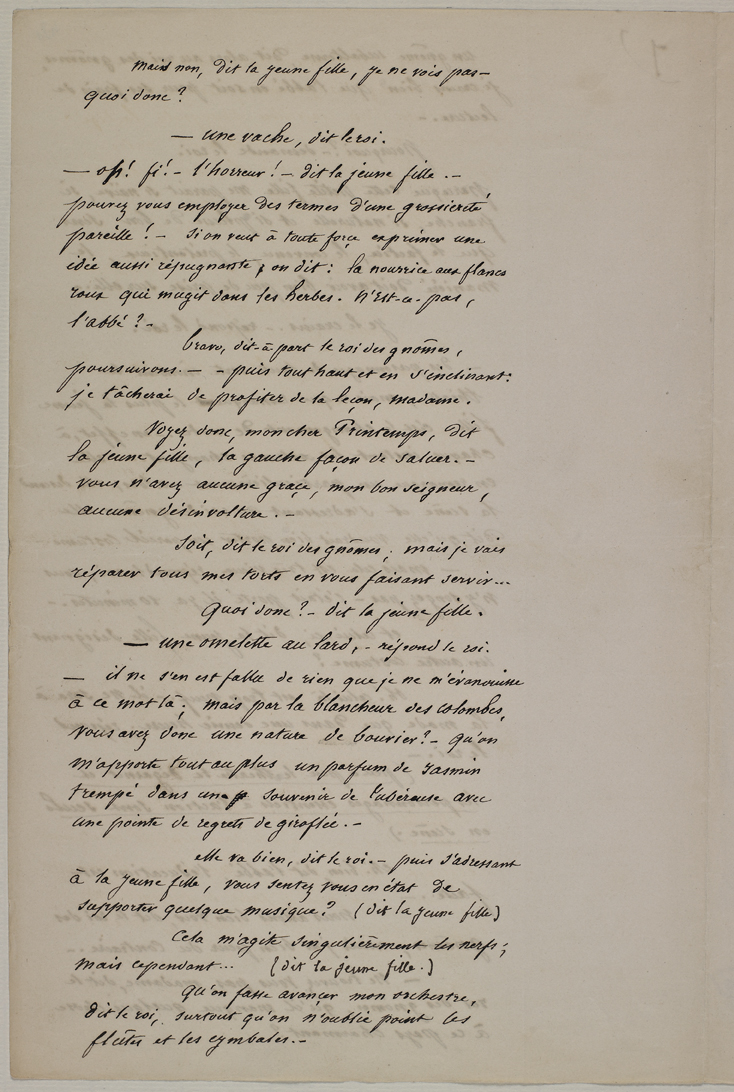 mais non, dit la jeune fille, je ne vois pas –
quoi donc ?
— une vache, dit le roi.
— oh ! fi ! – l'horreur ! – dit la jeune fille . –
pouvez vous employer des termes d'une grossiereté
pareille ! – si on veut à toute force exprimer une
idée aussi répugnante, on dit : la nourrice aux flancs
roux qui mugit dans les herbes. n'est-ce-pas,
l'abbé ? –
bravo, dit-à-part le roi des gnômes,
poursuivons. — – puis tout haut et en s'inclinant :
je tâcherai de profiter de la leçon, madame.
Voyez donc, mon cher Printemps, dit
la jeune fille, la gauche façon de saluer. –
vous n'avez aucune grace, mon bon seigneur,
aucune désinvolture. –
soit, dit le roi des gnômes ; mais je vais
réparer tous mes torts en vous faisant servir...
Quoi donc ? – dit la jeune fille.
— une omelette au lard, – répond le roi.
— il ne s'en est fallu de rien que je ne m'évanouisse
à ce mot là ; mais par la blancheur des colombes,
vous avez donc une nature de bouvier ? – qu'on
m'apporte tout au plus un parfum de jasmin
trempé dans un souvenir de tubéreuse avec
une pointe de regrets de giroflée. –
elle va bien, dit le roi. – puis s'adressant
à la jeune fille, vous sentez vous en état de
supporter quelque musique ? (dit la jeune fille)
Cela m'agite singulièrement les nerfs ;
mais cependant... (dit la jeune fille.)
qu'on fasse avancer mon orchestre,
dit le roi, surtout qu'on n'oublie point les
flûtes et les cymbales. –